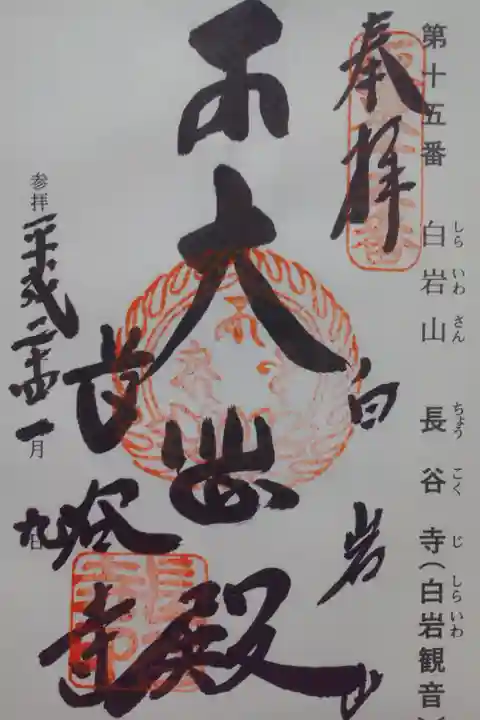 第十五番 白岩山 長谷寺(白岩観音
しら いわ さん ちょう こく じ しら いわ
奉拝
白岩山
大悲殿
長谷寺
参拝 平成二十四 一月 九日